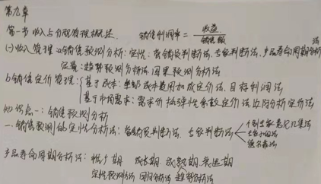 第九章
第一节 收入与分配管理概述. 销售利润率= 收益/销售额
(一)收入管理 a.销售预测分析: 定性: 营销员判断法, 专家判断法, 产品寿命周期分析法
定量: 趋势预测分析法 因果预测分析法
b.销售定价管理: 基于成本: 全部成本费用加成定价法, 目标利润法
基于市场需求: 需求价格弹性系数定价法 边际分析定价法
知识点一: 销售预测分析
一. 销售预测的定性分析法: 营销员判断法 专家判断法 个别专家意见汇集法
专家小组法
德尔菲法
产品寿命周期分析法: 推广期 成长期 成熟期 衰退期
定性预测法 回归分析法 趋势分析法